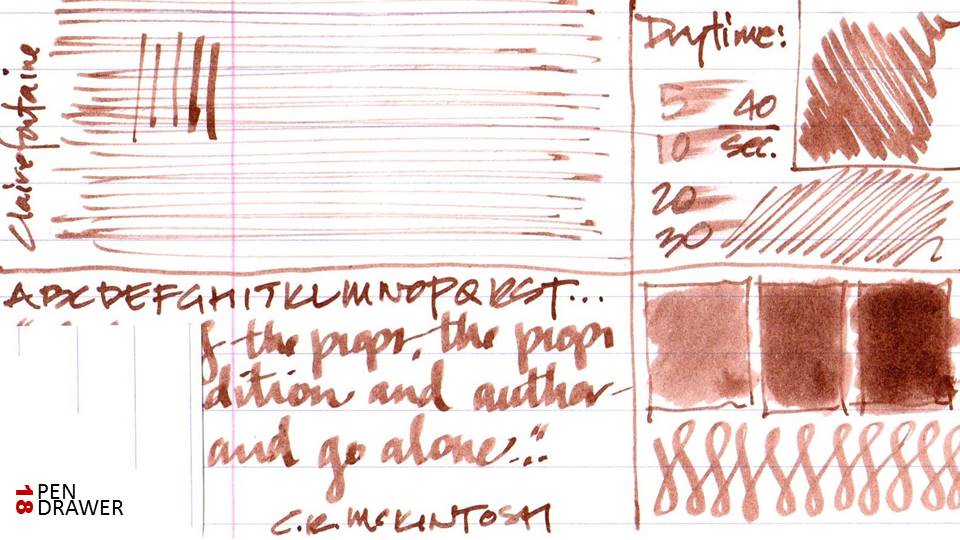 Clairefontaine
Drytime:
5 40
10 sec.
20
30
ABCDEFGHIJKLMNOPQRST...
f the props, the props
dition and author-
and go alone..."
C.R. McKINTOSH
18 PEN
DRAWER